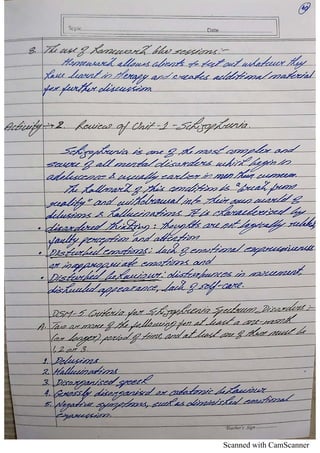 Topic
Date
3. The use of Homework b/w sessions :-
Homework allows clients to test out whatever they
have learnt in therapy and creates additional material
for further discussion
Activity → 2. Review of Unit - 1 - Schizophrenia.
Schizophrenia is one of the most complex and
severe of all mental disorders which begin in
adolescence & usually earlier in men than women.
The hallmark of this condition is "break from
reality" and withdrawal into their own world of
delusions & hallucinations. It is characterized by
• disordered thinking : thoughts are not logically related,
faulty perception and attention
• Disturbed emotions: lack of emotional expressiveness
or inappropriate emotions and
• Disturbed behaviour: disturbances in movement
disheveled appearance, lack of self-care.
DSM-5 Criteria for Schizophrenia Spectrum Disorders :-
A. Two or more of the following for at least a one-month
(or longer) period of time, and at least one of them must be
1, 2 or 3
1. Delusions
2. Hallucinations
3. Disorganised speech
4. Grossly disorganised or catatonic behaviour
5. Negative symptoms, such as diminished emotional
expression.
Teacher's Sign
Scanned with CamScanner